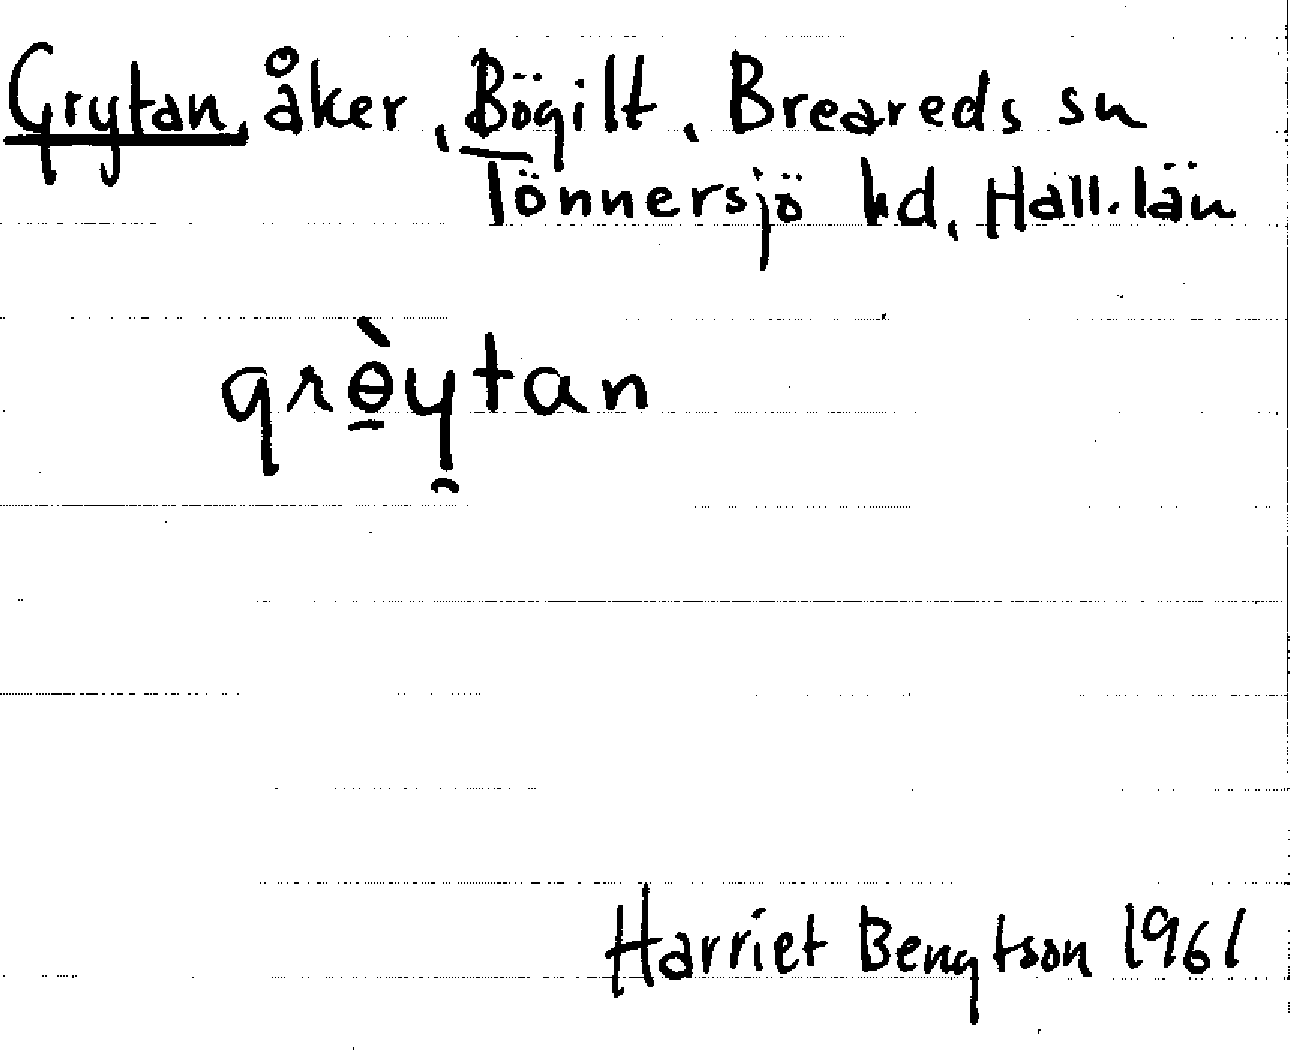 Grytan, åker, Bögilt, Breareds sn
Tönnersjö hd, Hall. län
grɵ̱̀y̯tan
Harriet Bengtson 1961